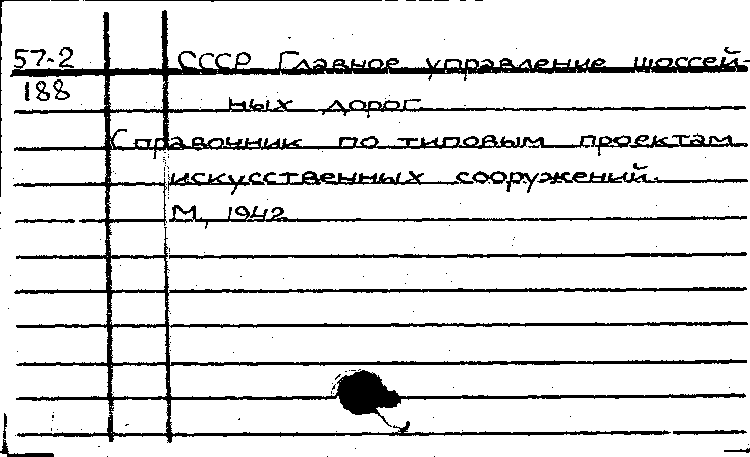 57-2 СССР Главное управление шоссей-
188 ных дорог
Справочник по типовым проектам
искусственных сооружений.
М., 1942